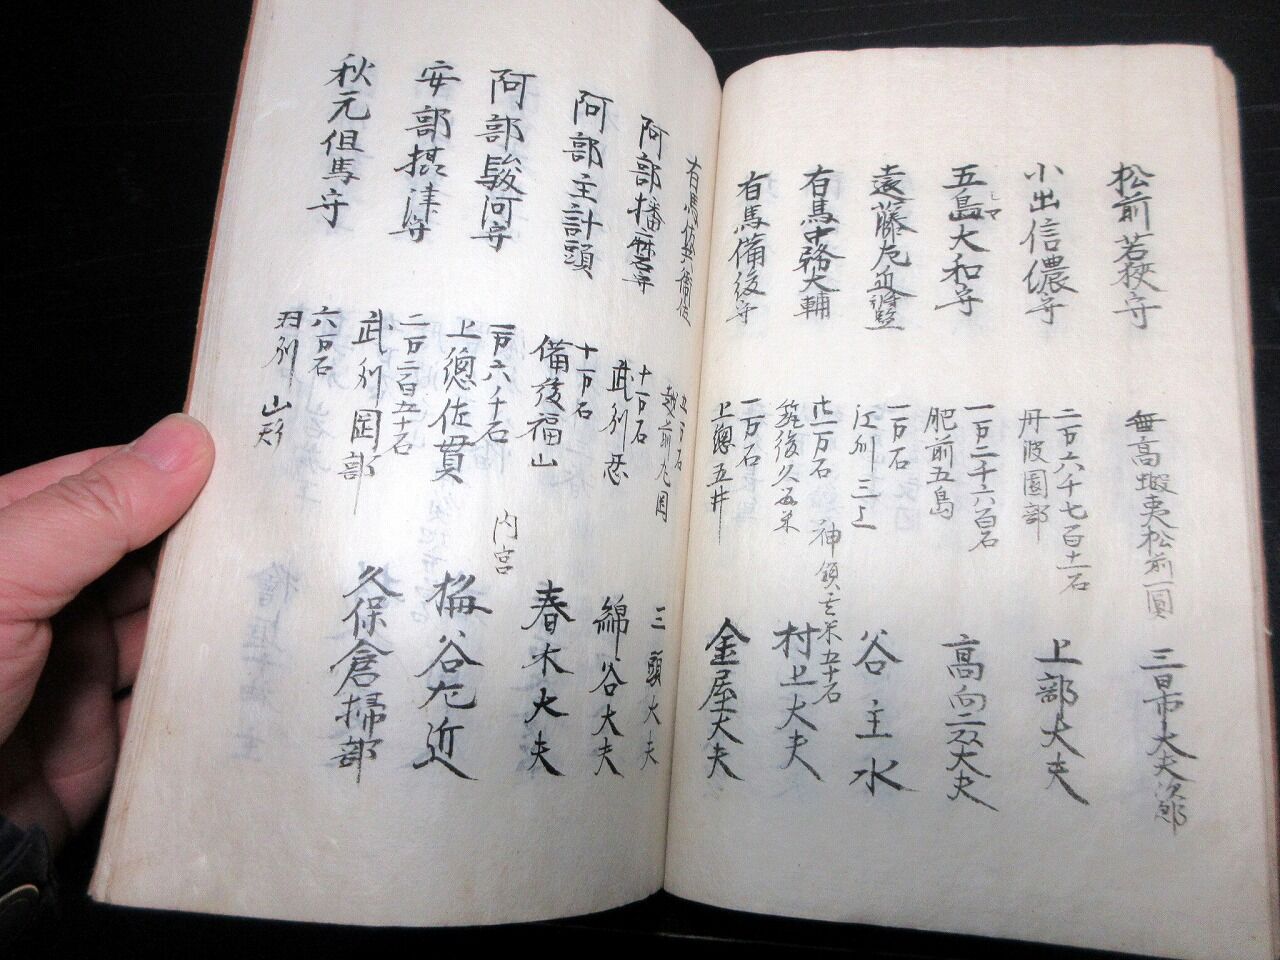 松前若狭守
無高蝦夷松前一圓
三日市大夫次郎
小出信濃守
二万六千七百十一石
丹波園部
上部大夫
五島大和守
シマ
一万二千六百石
肥前五島
高向二双大夫
遠藤左近
一万石
江刕三上
谷主水
有馬中務大輔
廿一万石
筑後久留米
神領玄米五十石
村上大夫
有馬備後守
一万石
上總五井
金屋大夫
有馬
五万石
越前丸岡
三頭大夫
阿部播磨守
十一万石
武刕忍
綿谷大夫
阿部主計頭
十一万石
備後福山
春木大夫
阿部駿河守
一万六千石
上總佐貫
内宮
梅谷左近
安部摂津守
二万二百五十石
武刕岡部
久保倉掃部
秋元但馬守
六万石
羽刕山形